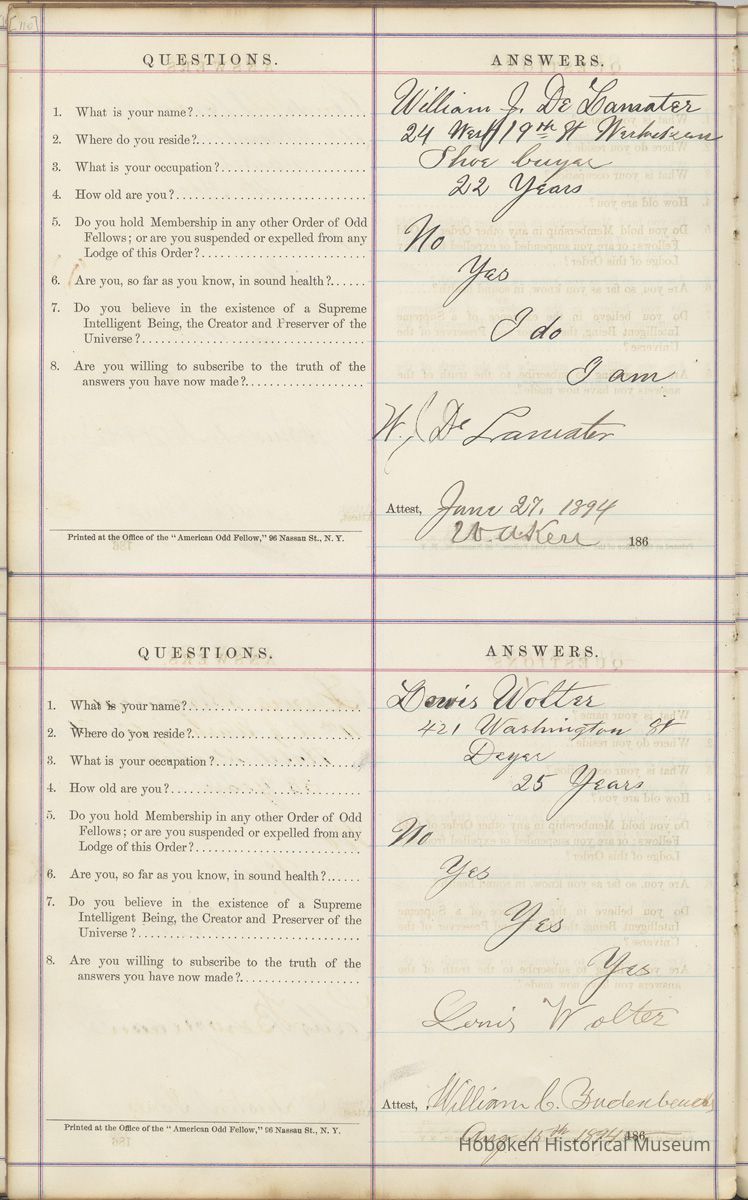 [110]
QUESTIONS. ANSWERS.
1. What is your name? William J. De Lamater
2. Where do you reside? 24 West 19th St
3. What is your occupation? Shoe buyer
4. How old are you? 22 Years
5. Do you hold Membership in any other Order of Odd
Fellows; or are you suspended or expelled from any No
Lodge of this Order?
6. Are you, so far as you know, in sound health? Yes
7. Do you believe in the existence of a Supreme
Intelligent Being, the Creator and Preserver of the I do
Universe?
8. Are you willing to subscribe to the truth of the I am
answers you have now made?
W. J. De Lamater
Attest, June 27, 1894
W. A. Kerr 186
Printed at the Office of the "American Odd Fellow," 96 Nassau St., N. Y.
QUESTIONS. ANSWERS.
1. What is your name? Louis Wolter
2. Where do you reside? 421 Washington St
3. What is your occupation? Deyer
4. How old are you? 25 Years
5. Do you hold Membership in any other Order of Odd
Fellows; or are you suspended or expelled from any No
Lodge of this Order?
6. Are you, so far as you know, in sound health? Yes
7. Do you believe in the existence of a Supreme
Intelligent Being, the Creator and Preserver of the Yes
Universe?
8. Are you willing to subscribe to the truth of the Yes
answers you have now made?
Louis Wolter
Attest, William C.
Printed at the Office of the "American Odd Fellow," 96 Nassau St., N. Y.
Aug 15th 1894 186
Hoboken Historical Museum